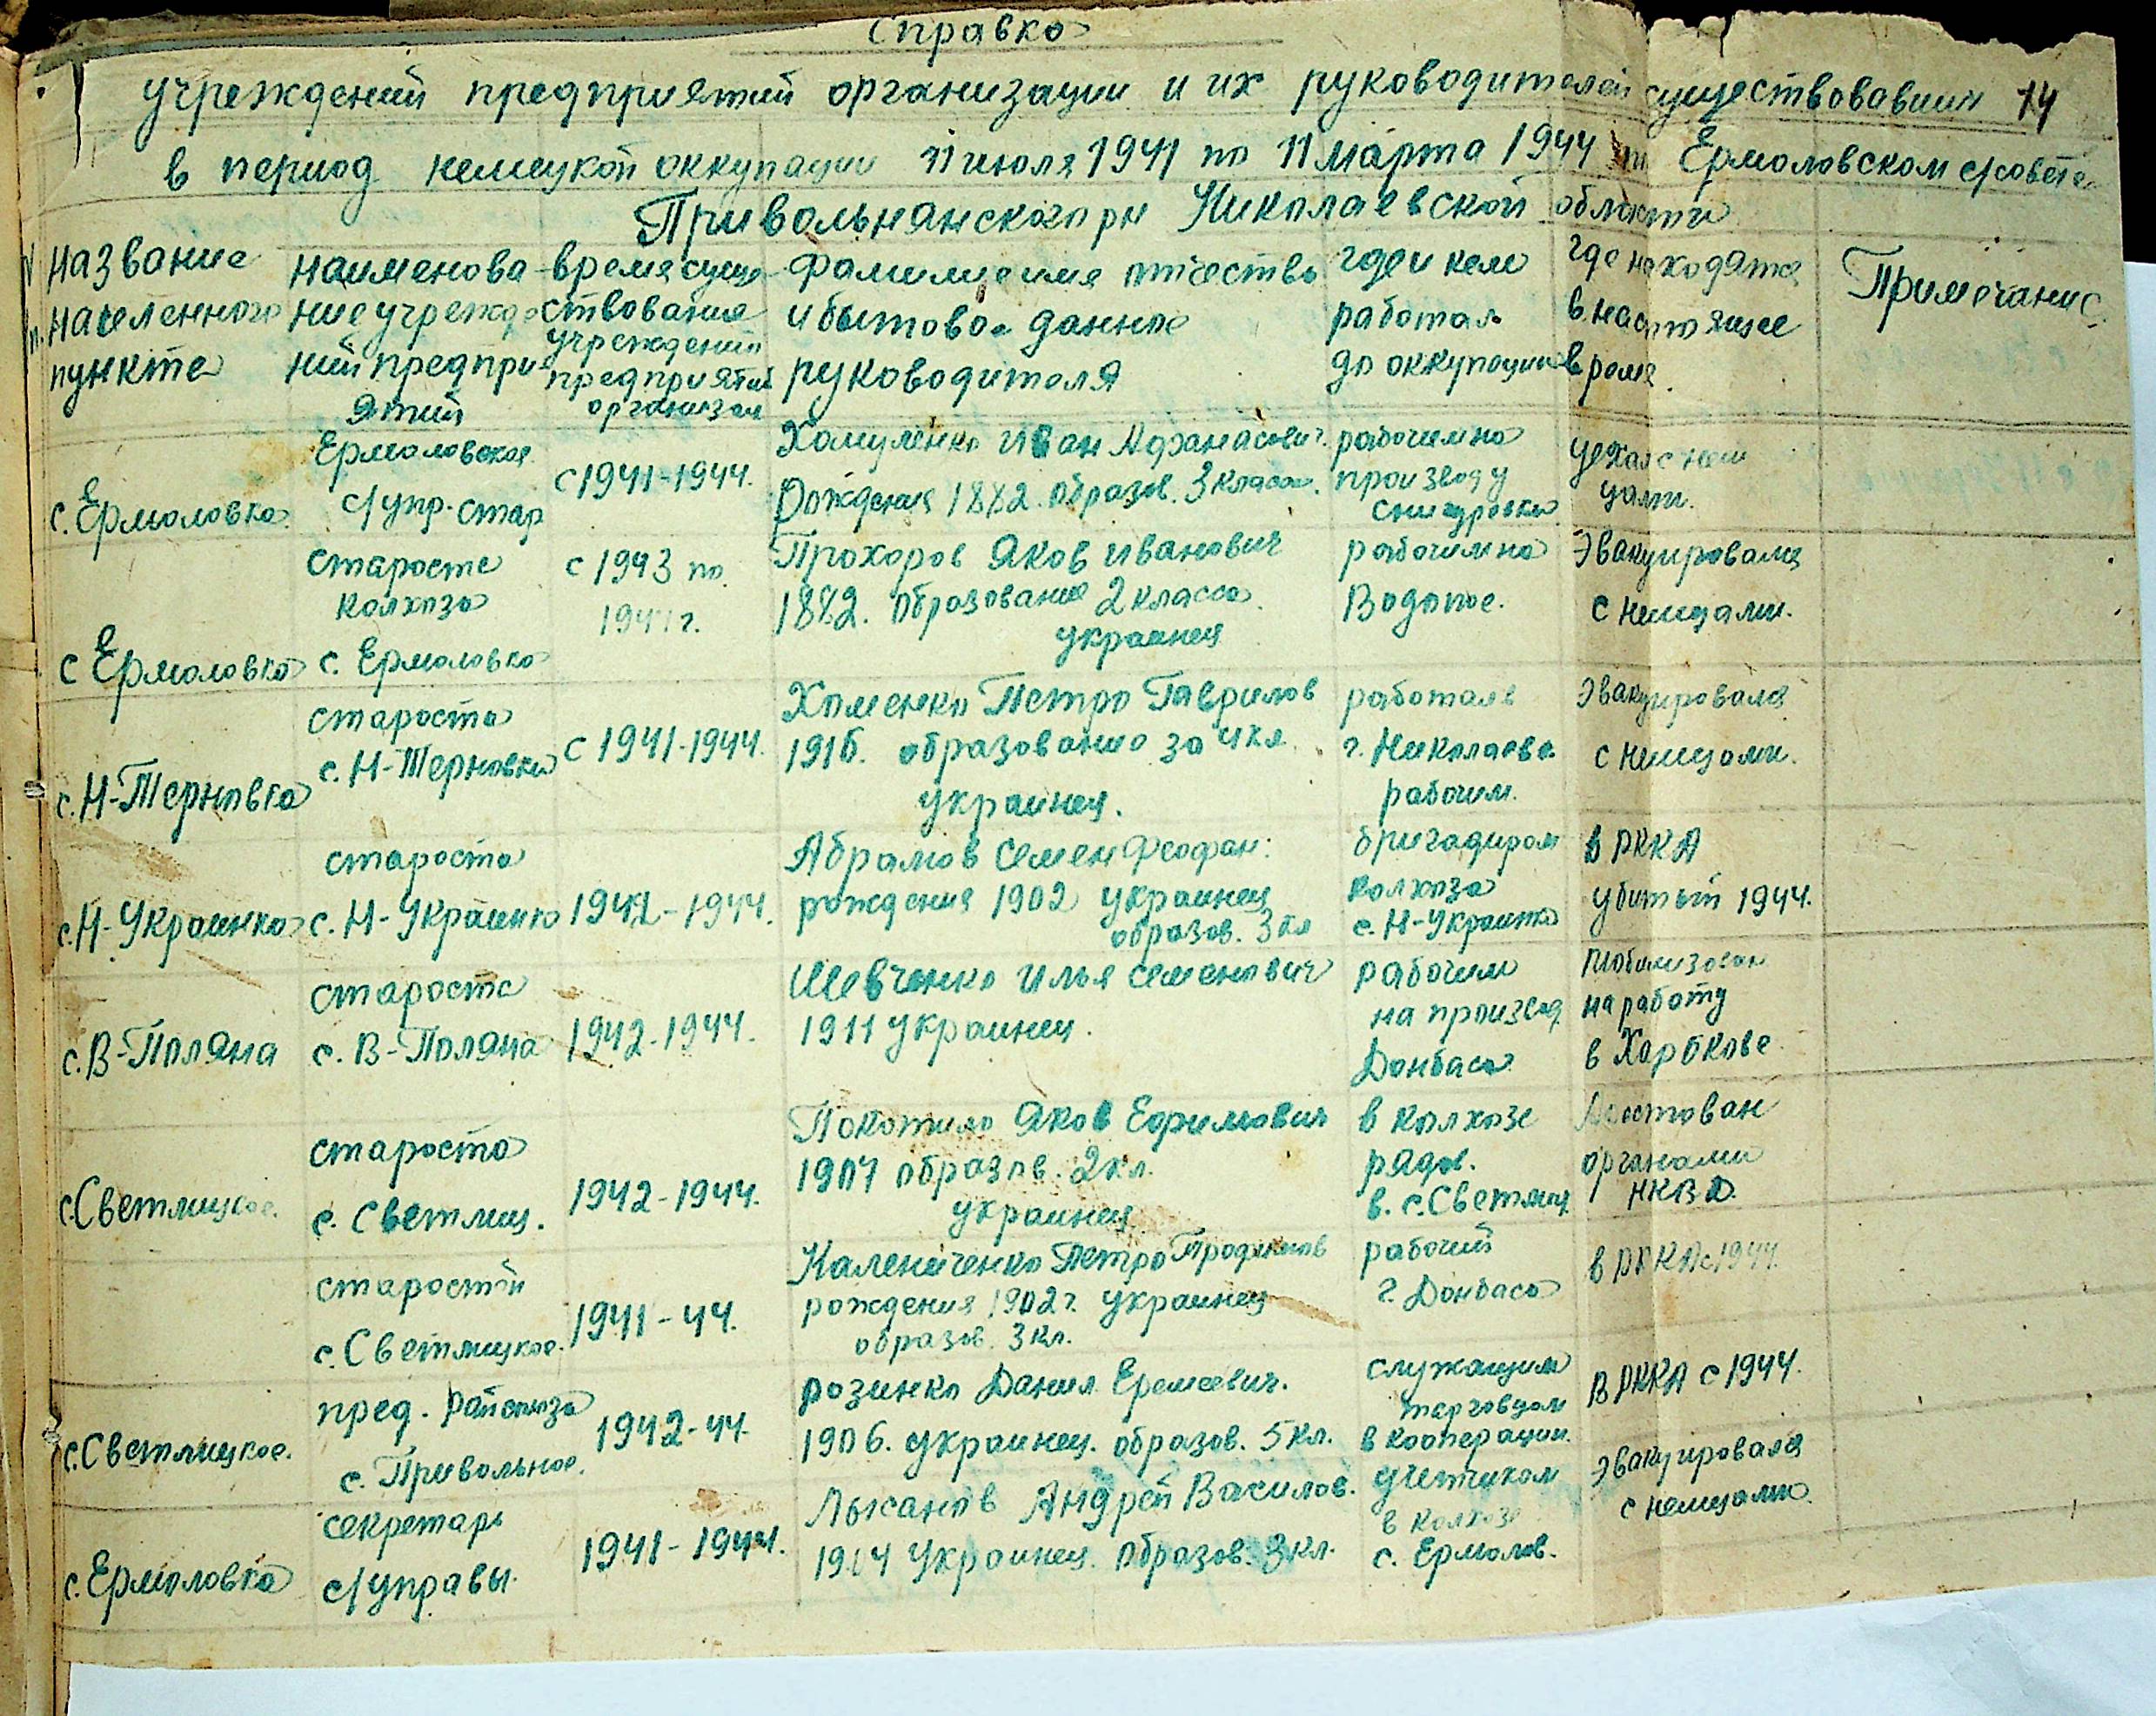 Справка
учреждений предприятий организации и их руководителей существовавший 14
в период немецкой оккупации 11 июля 1941 по 11 марта 1944 Ермоловском с/совете
Привольнянского рн Николаевской области
Название
населенного
пункта
наименова-
ние учрежде
ний предпри
ятий
время суще-
ствования
учреждений
предприятий
организац
Фамилие имя отчество
и бытовое данное
руководителя
где и кем
работал
до оккупации
где находятся
в настоящее
время.
Примечание
с. Ермоловка
Ермоловская
с/упр. стар
с 1941-1944.
Иван Афанасович.
Рождения 1882. образов. 3 класса.
рабочим на
производ у
Снигуровки
уехал с нем
цами.
с Ермоловка
старосте
колхоза
с. Ермоловка
с 1943 по
Прохоров Яков Иванович
1882. образование 2 класса.
украинец
рабочим на
Водопое.
Эвакуировался
с немцами.
с. Н-Терновка
староста
с. Н-Терновки
с 1941-1944.
Хоменко Петро Гаврилов
образование за 4 кл.
украинец.
работал в
г. Николаеве
рабочим.
эвакуировался
с немцами.
с. Н-Украинка
староста
с. Н-Украинка
1942-1944.
Абрамов Семен Феофан.
рождения 1902 украинец
образов. 3 кл
бригадиром
колхоза
с. Н-Украинка
в РККА
убитый 1944.
с. В-Поляна
староста
с. В-Поляна
1942-1944.
Шевченко Илья Семенович
1911 украинец.
рабочим
на производ.
Донбаса
мобилизован
на работу
в Харькове
с. Светлицкое.
староста
с. Светлиц.
1942-1944.
Покотило Яков Ефимович
1907 образов. 2 кл.
украинец
в колхозе
рядов.
в. с. Светлиц
органами
НКВД.
старостой
с. Светлицкое.
1941-44.
Калениченко Петро Трофимов
рождения 1902 г. украинец
образов. 3 кл.
рабочий
г. Донбаса
в РККА с 1944.
с. Светлицкое.
пред. Райсоюза
с. Привольное.
1942-44.
розинко Данил Еремеевич.
1906. украинец. образов. 5 кл.
служащим
торговцом
в кооперации.
В РККА с 1944.
с. Ермоловка
секретарь
с/управы.
1941-1944.
Лысанов Андрей Васиlов.
украинец. образов. 3 кл.
учетчиком
в колхозе
с. Ермолов.
эвакуировался
с немцами.